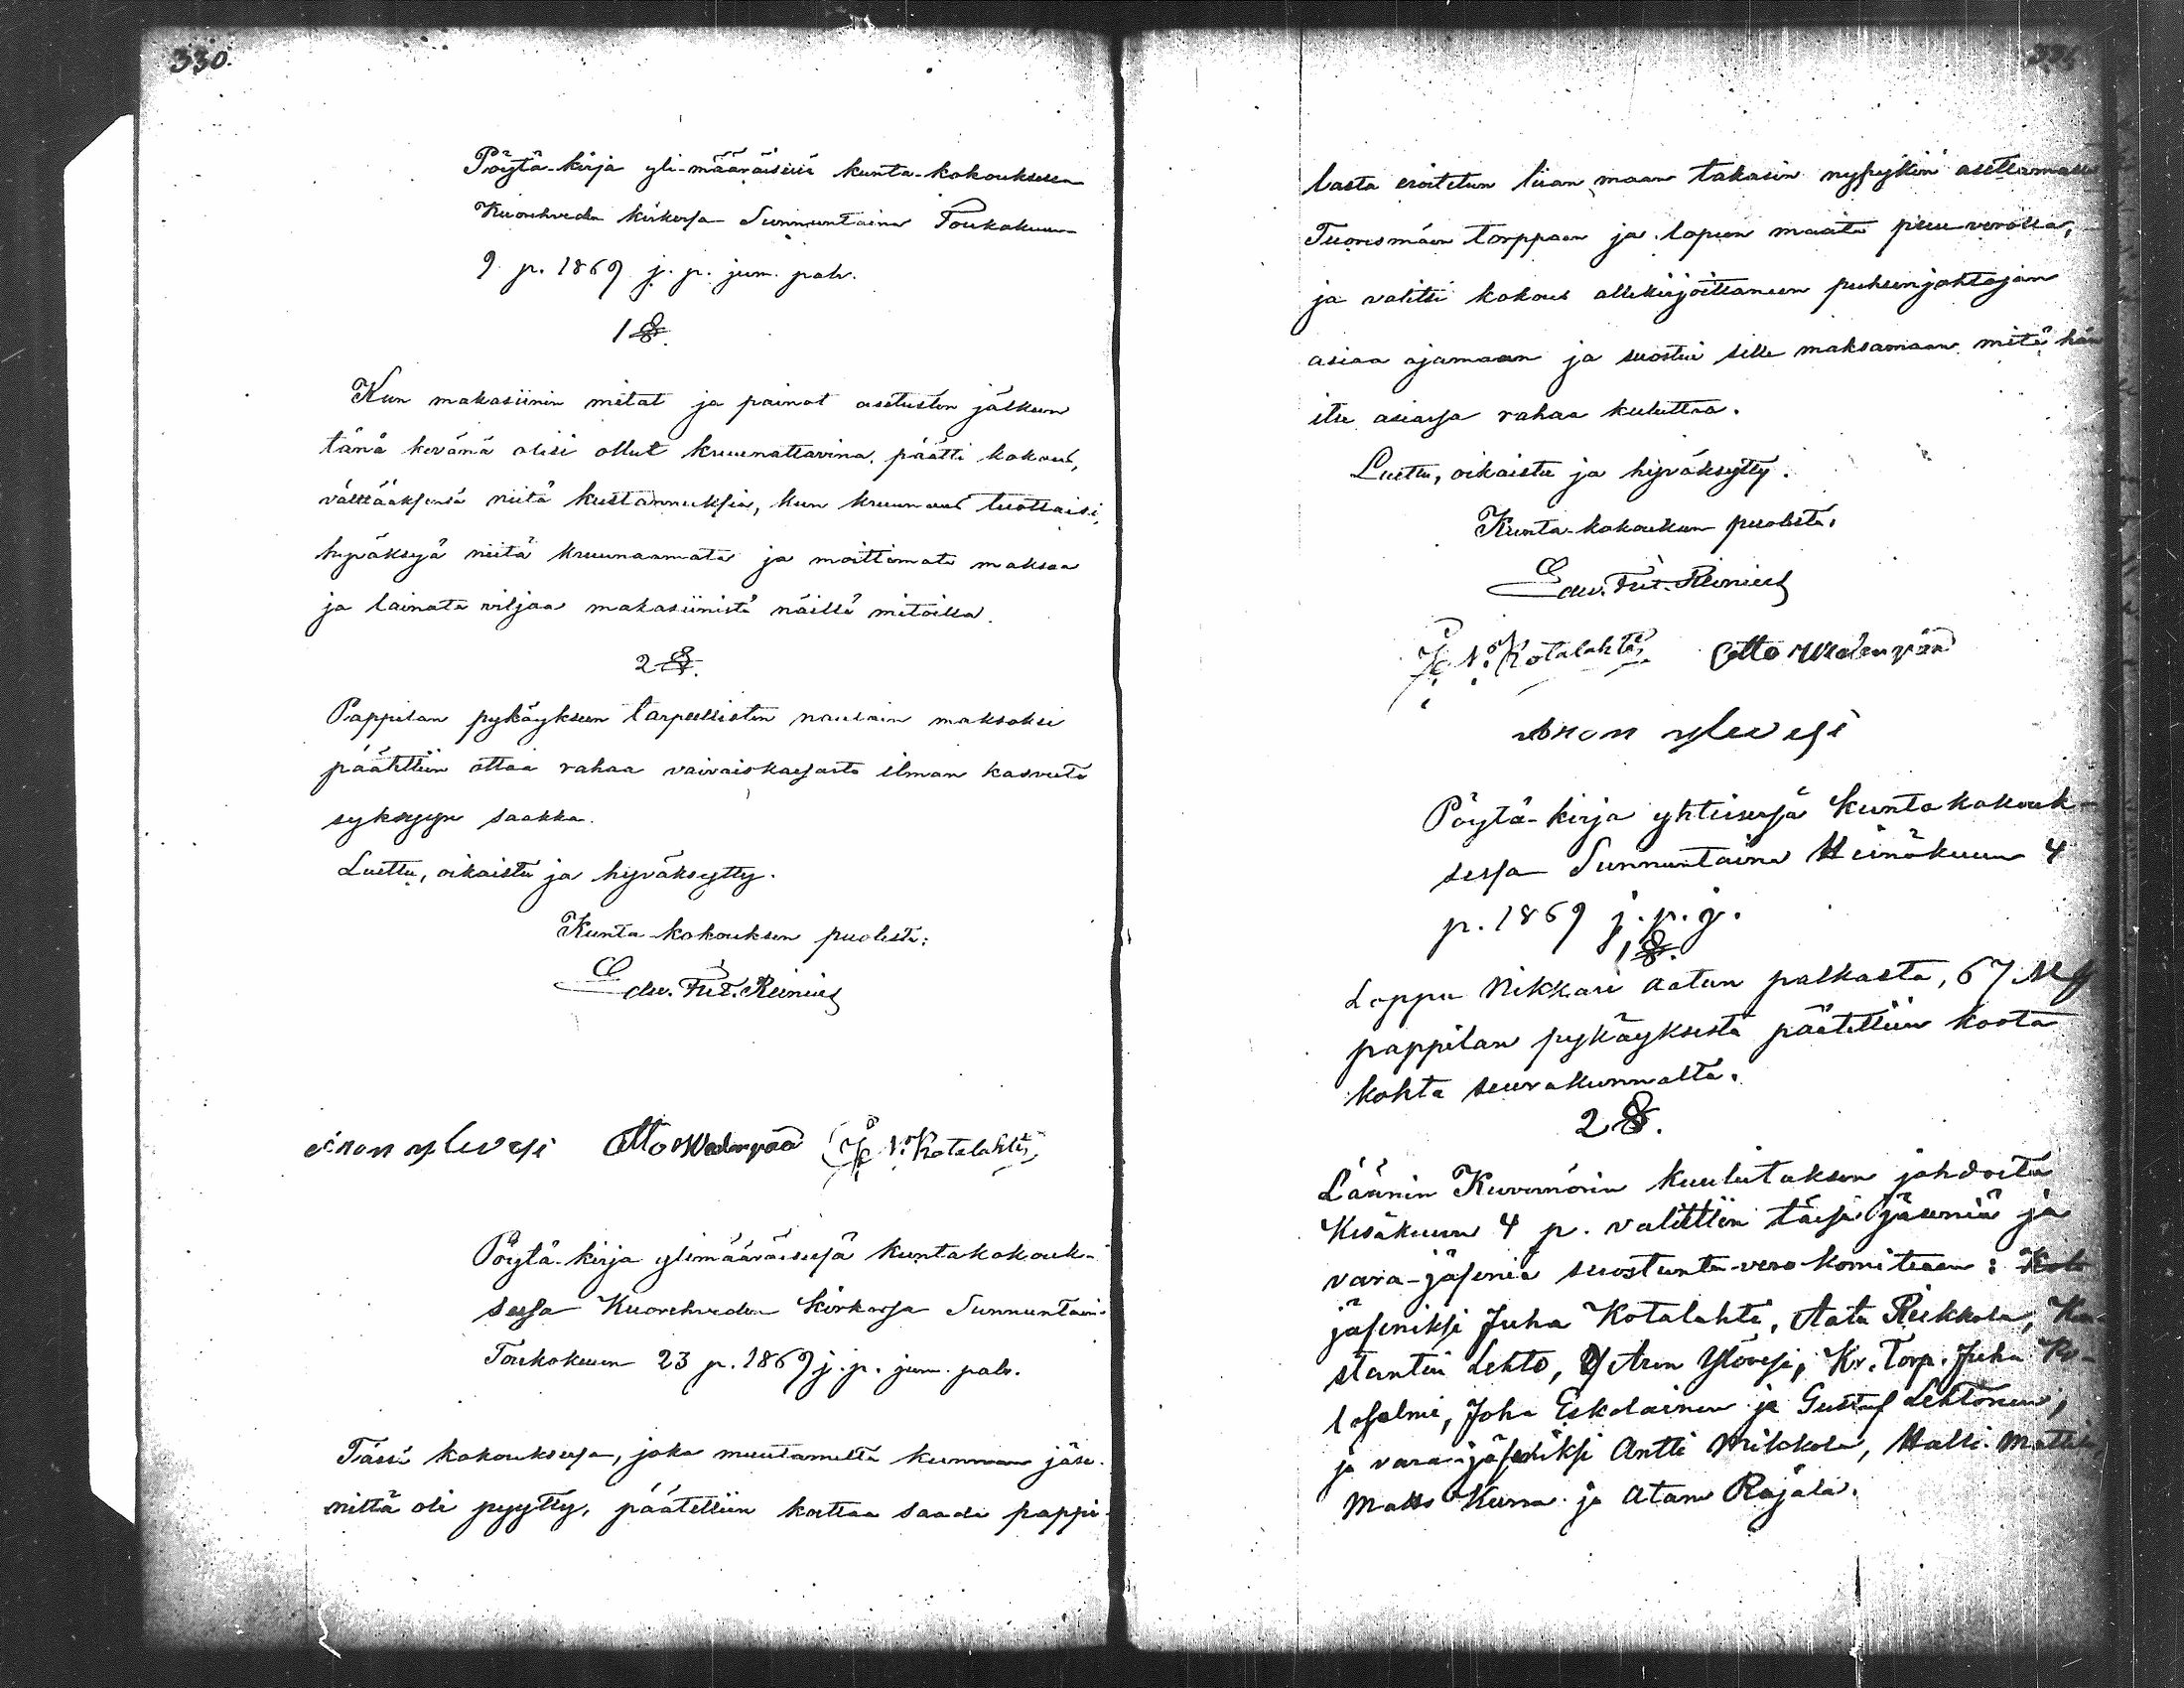 330.
Pöytä-kirja yli-määräisessä kunta-kokouksessa
Kuorehveden kirkossa Sunnuntaina Toukokuun
9 p. 1869 j. p. jum. palv.
1 §.
Kun makasiinin mitat ja painot asetusten jälkeen
tänä kevänä olisi ollut kruunattavina, päätti kokous,
välttääksensä niitä kustannuksia, kun kruunaus tuottaisi,
hyväksyä niitä kruunaamata ja moittimata maksaa
ja lainata viljaa makasiinista näillä mitoilla.
2 §.
Pappilan pykäykseen tarpeellisten naulain maksoksi
päätettiin ottaa rahaa vaivaiskassasta ilman kasvuta
syksyyn saakka.
Luettu, oikaistu ja hyväksytty.
Kunta-kokouksen puolesta:
Edv. Fred. Reinius
Aron ylevesi Otto Wedenpää J. N. Kotalahti
Pöytä-kirja ylimääräisessä kuntakokouk-
sessa Kuorehveden kirkossa Sunnuntaina
Toukokuun 23 p. 1869 j. p. jum. palv.
Tässä kokouksessa, joka muutamilta kunnan jäse-
niltä oli pyytty, päätettiin koettaa saada pappi-
lasta eroitetun liian maan takasin nykyjkin asettamasta
Tuoresmäen torppaan ja lapion maata puu verolla,
ja valitti kokous allekirjoittaneen puheenjohtajan
asiaa ajamaan ja suostui sille maksamaan mitä hän
itse asiassa rahaa kuluttaa.
Luettu, oikaistu ja hyväksytty.
Kunta-kokouksen puolesta:
Edv. Fred. Reinius
J. N. Kotalahti Otto Wedenpää
Aron ylevesi
Pöytä-kirja yhteisessä kuntakokouk-
sessa Sunnuntaina Heinäkuun 4
p. 1869 j. p. j.
1 §.
Loppu Nikkari Aatun palkasta, 67 Mk
pappilan pykäyksestä päätettiin koota
kohta seurakunnalta.
2 §.
Läänin Kuvernörin kuulutuksen johdosta
Kesäkuun 4 p. valittiin täysi jäseniä ja
vara-jäseniä suostunta-vero komiteaan:
jäseniksi Juha Kotalahti, Aatu Riekkola, Kon-
stantin Lehto, Aron Ylövesi, Kr. Torp. Juha Ko-
losalmi, Joha Eskolainen ja Gustaf Lehtonen,
ja vara-jäseniksi Antti Mikkola, Halli Mattila,
Matts Kurra ja Atam Rajala.